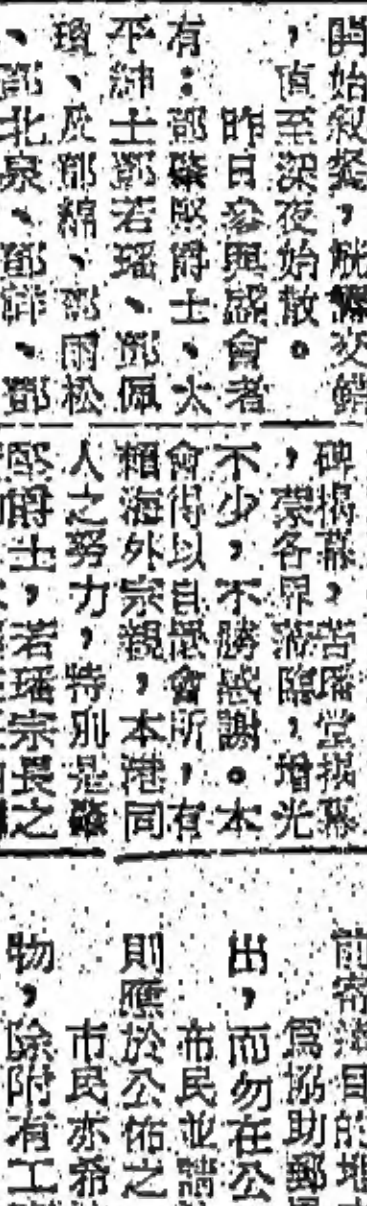 開始叙餐，觥籌交錯
，直至深夜始散。
昨日參與盛會者
有：鄧肇堅爵士、太
平紳士鄧若璠、鄧佩
瓊、及鄧綿、鄧雨松
、鄧北泉、鄧詳、鄧
碑揭幕，若璠堂揭幕
，蒙各界蒞臨，增光
不少，不勝感謝。本
會得以自置會所，有
賴海外宗親，本港同
人之努力，特別是肇
堅爵士，若璠宗長之
前寄海目的地
爲協助郵
出，而勿在公
市民並請
則應於公佈之
市民亦希
物，除附有工